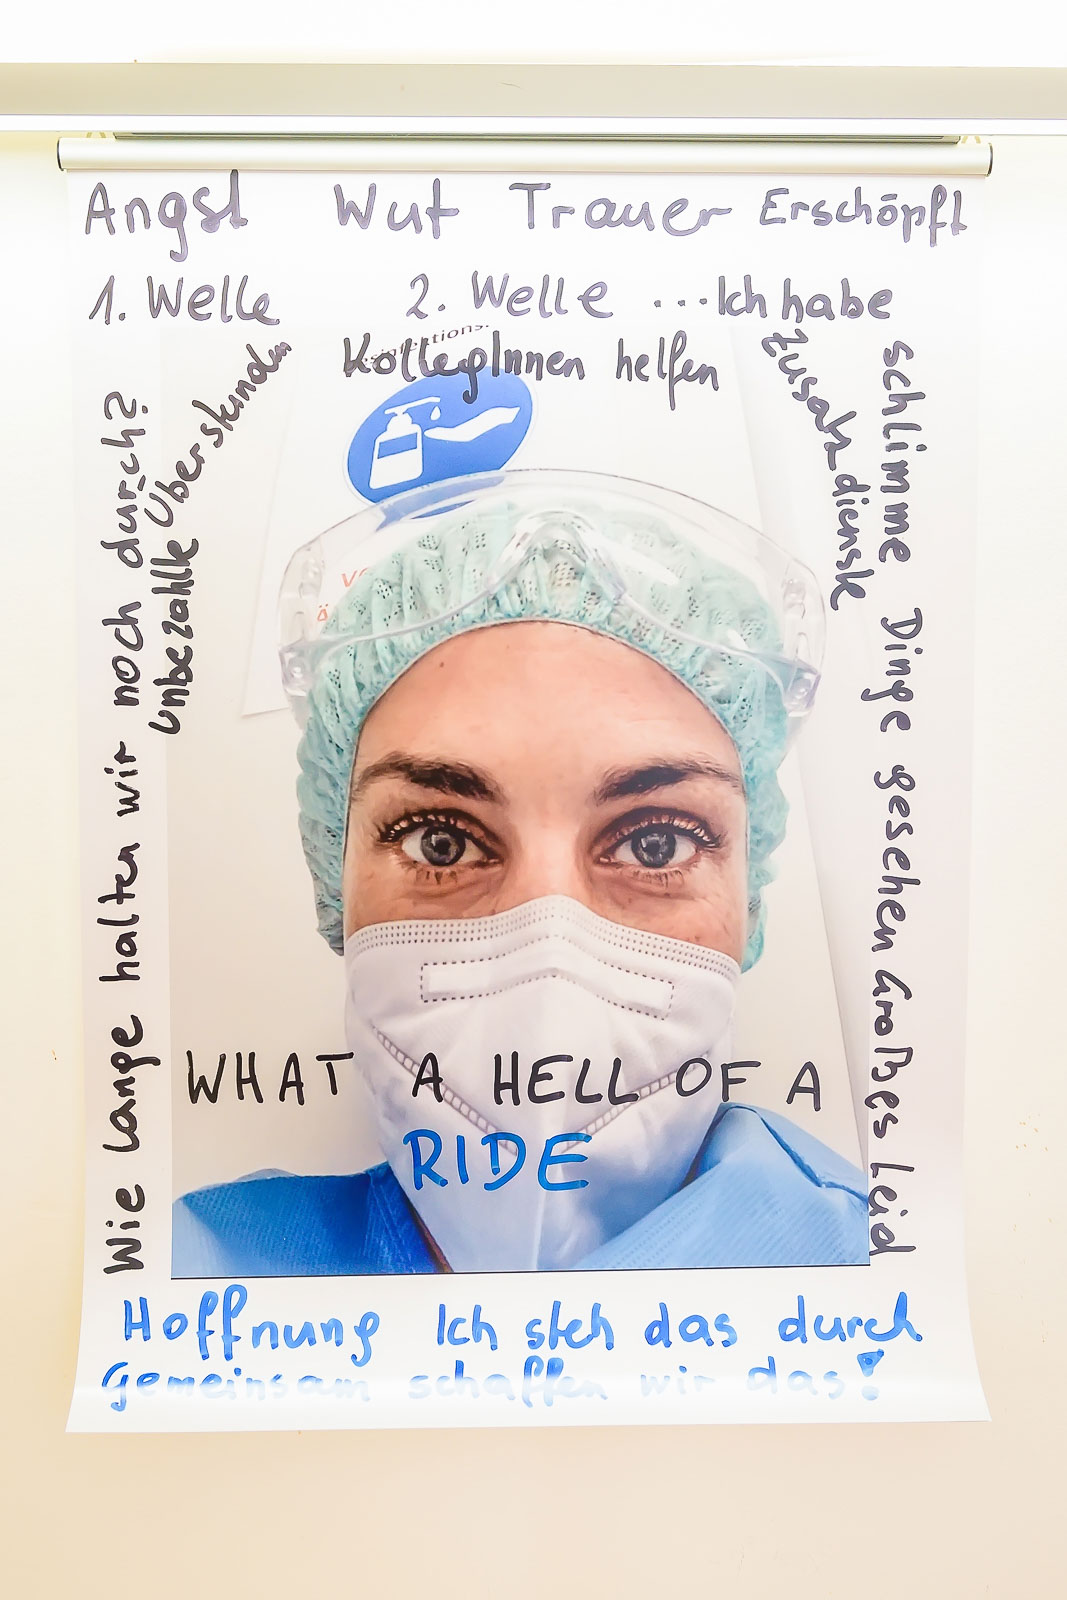 Angst Wut Trauer Erschöpft
1. Welle 2. Welle ...Ich habe
schlimme Dinge gesehen Großes Leid
KollegInnen helfen
Zusatzdienste
Unbezahlte Überstunden
Wie lange halten wir noch durch?
WHAT A HELL OF A
RIDE
Hoffnung Ich steh das durch
Gemeinsam schaffen wir das!